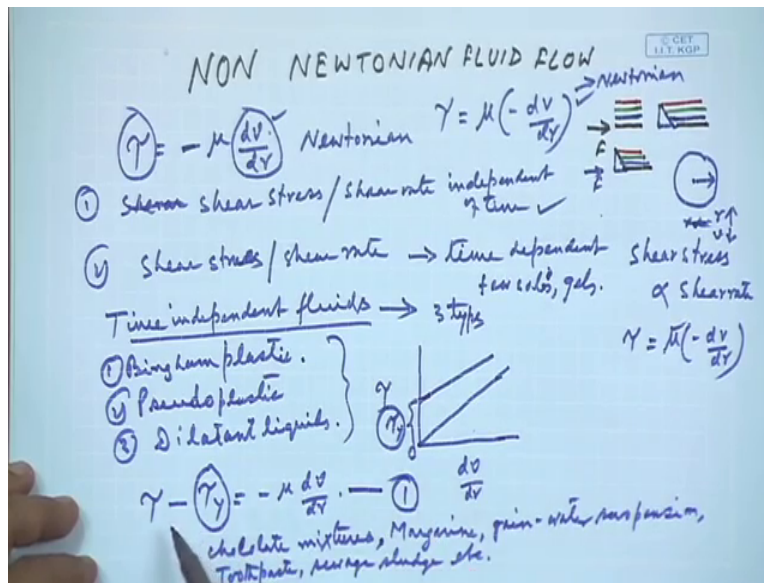 © CET
I.I.T. KGP
NON NEWTONIAN FLUID FLOW
τ = - μ (dv/dr) Newtonian τ = μ(- dv/dr) → Newtonian
F
F
① shear stress/shear rate independent
of time ✓
r↑
v↓
② Shear stress/shear rate → time dependent
few sols, gels.
Shear stress
∝ Shear rate
Time independent fluids → 3 types
τ = μ(- dv/dr)
① Bingham plastic.
② Pseudoplastic
③ Dilatant liquids.
τ
τy
0
dv/dr
τ - τy = - μ dv/dr . — ①
chocolate mixtures, Margarine, grain-water suspension,
Toothpaste, sewage sludge etc.